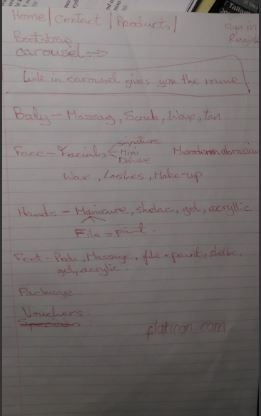 Home | Contact | Products |
Sign in
Bootstrap
carousel →
Link in carousel gives you the name
Body - Massag, Scrub, Wax, tan
Face - Facials Signature
Mini
Deluxe
Wax, Lashes, Make-up
Hands - Manicure, shelac, gel, acryllic
File + paint.
Feet - Pedi, Massage, file + paint,
gel, acrylic.
Package
Vouchers
flaticon.com